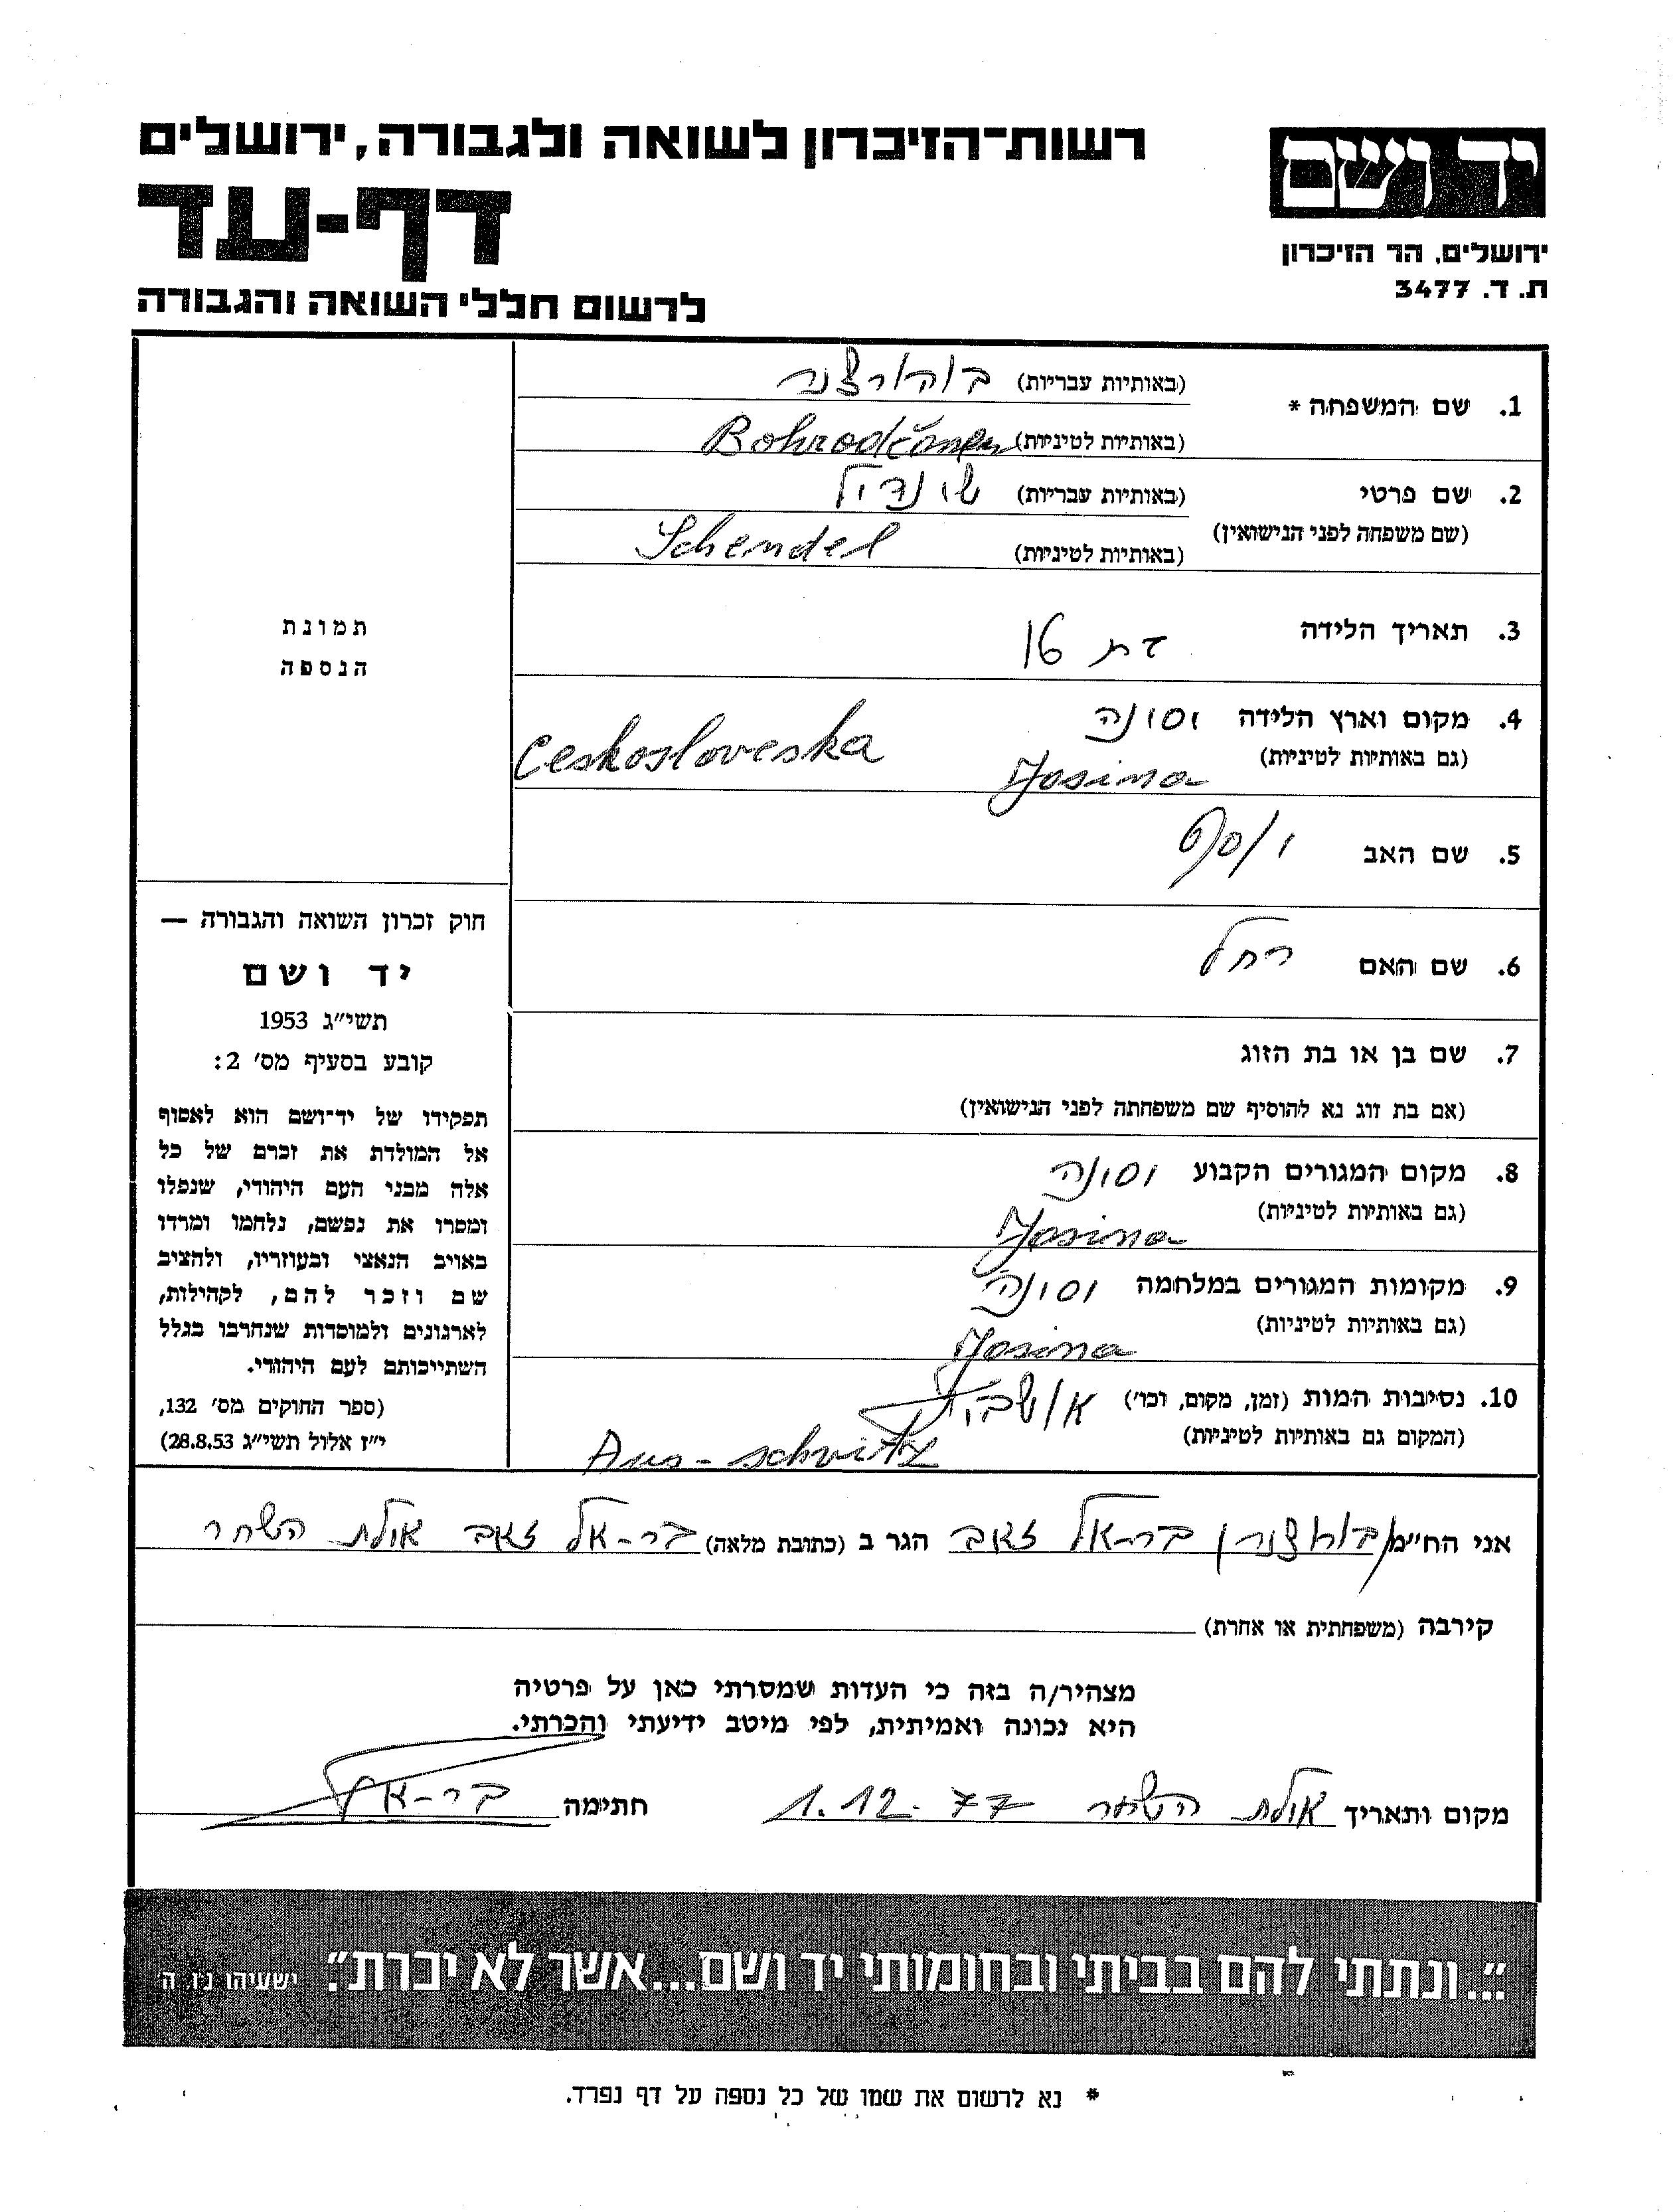 רשות־הזיכרון לשואה ולגבורה, ירושלים
דף-עד
לרשום חללי השואה והגבורה
יד ושם
ירושלים, הר הזיכרון
ת. ד. 3477
1. שם המשפחה * (באותיות עבריות)
(באותיות לטיניות)
2. שם פרטי (באותיות עבריות) שנדיל
(שם משפחה לפני הנישואין)
(באותיות לטיניות) Schendel
3. תאריך הלידה בת 16
4. מקום וארץ הלידה יסינה
(גם באותיות לטיניות) Jasina Ceskosloveska
5. שם האב יוסף
6. שם האם רחל
7. שם בן או בת הזוג
(אם בת זוג נא להוסיף שם משפחתה לפני הנישואין)
8. מקום המגורים הקבוע יסינה
(גם באותיות לטיניות) Jasina
9. מקומות המגורים במלחמה יסינה
(גם באותיות לטיניות) Jasina
10. נסיבות המות (זמן, מקום, וכו')
(המקום גם באותיות לטיניות) Aus-schvitz
תמונת
הנספה
חוק זכרון השואה והגבורה —
יד ושם
תשי"ג 1953
קובע בסעיף מס' 2:
תפקידו של יד־ושם הוא לאסוף
אל המולדת את זכרם של כל
אלה מבני העם היהודי, שנפלו
ומסרו את נפשם, נלחמו ומרדו
באויב הנאצי ובעוזריו, ולהציב
שם וזכר להם, לקהילות,
לארגונים ולמוסדות שנחרבו בגלל
השתייכותם לעם היהודי.
(ספר החוקים מס' 132,
י"ז אלול תשי"ג 28.8.53)
אני הח"מ בר-אל זאב הגר ב (כתובת מלאה) בר-אל זאב אילת השחר
קירבה (משפחתית או אחרת)
מצהיר/ה בזה כי העדות שמסרתי כאן על פרטיה
היא נכונה ואמיתית, לפי מיטב ידיעתי והכרתי.
מקום ותאריך אילת השחר 1.12.77 חתימה בר-אל
"...ונתתי להם בביתי ובחומותי יד ושם...אשר לא יכרת". ישעיהו נו ה
* נא לרשום את שמו של כל נספה על דף נפרד.